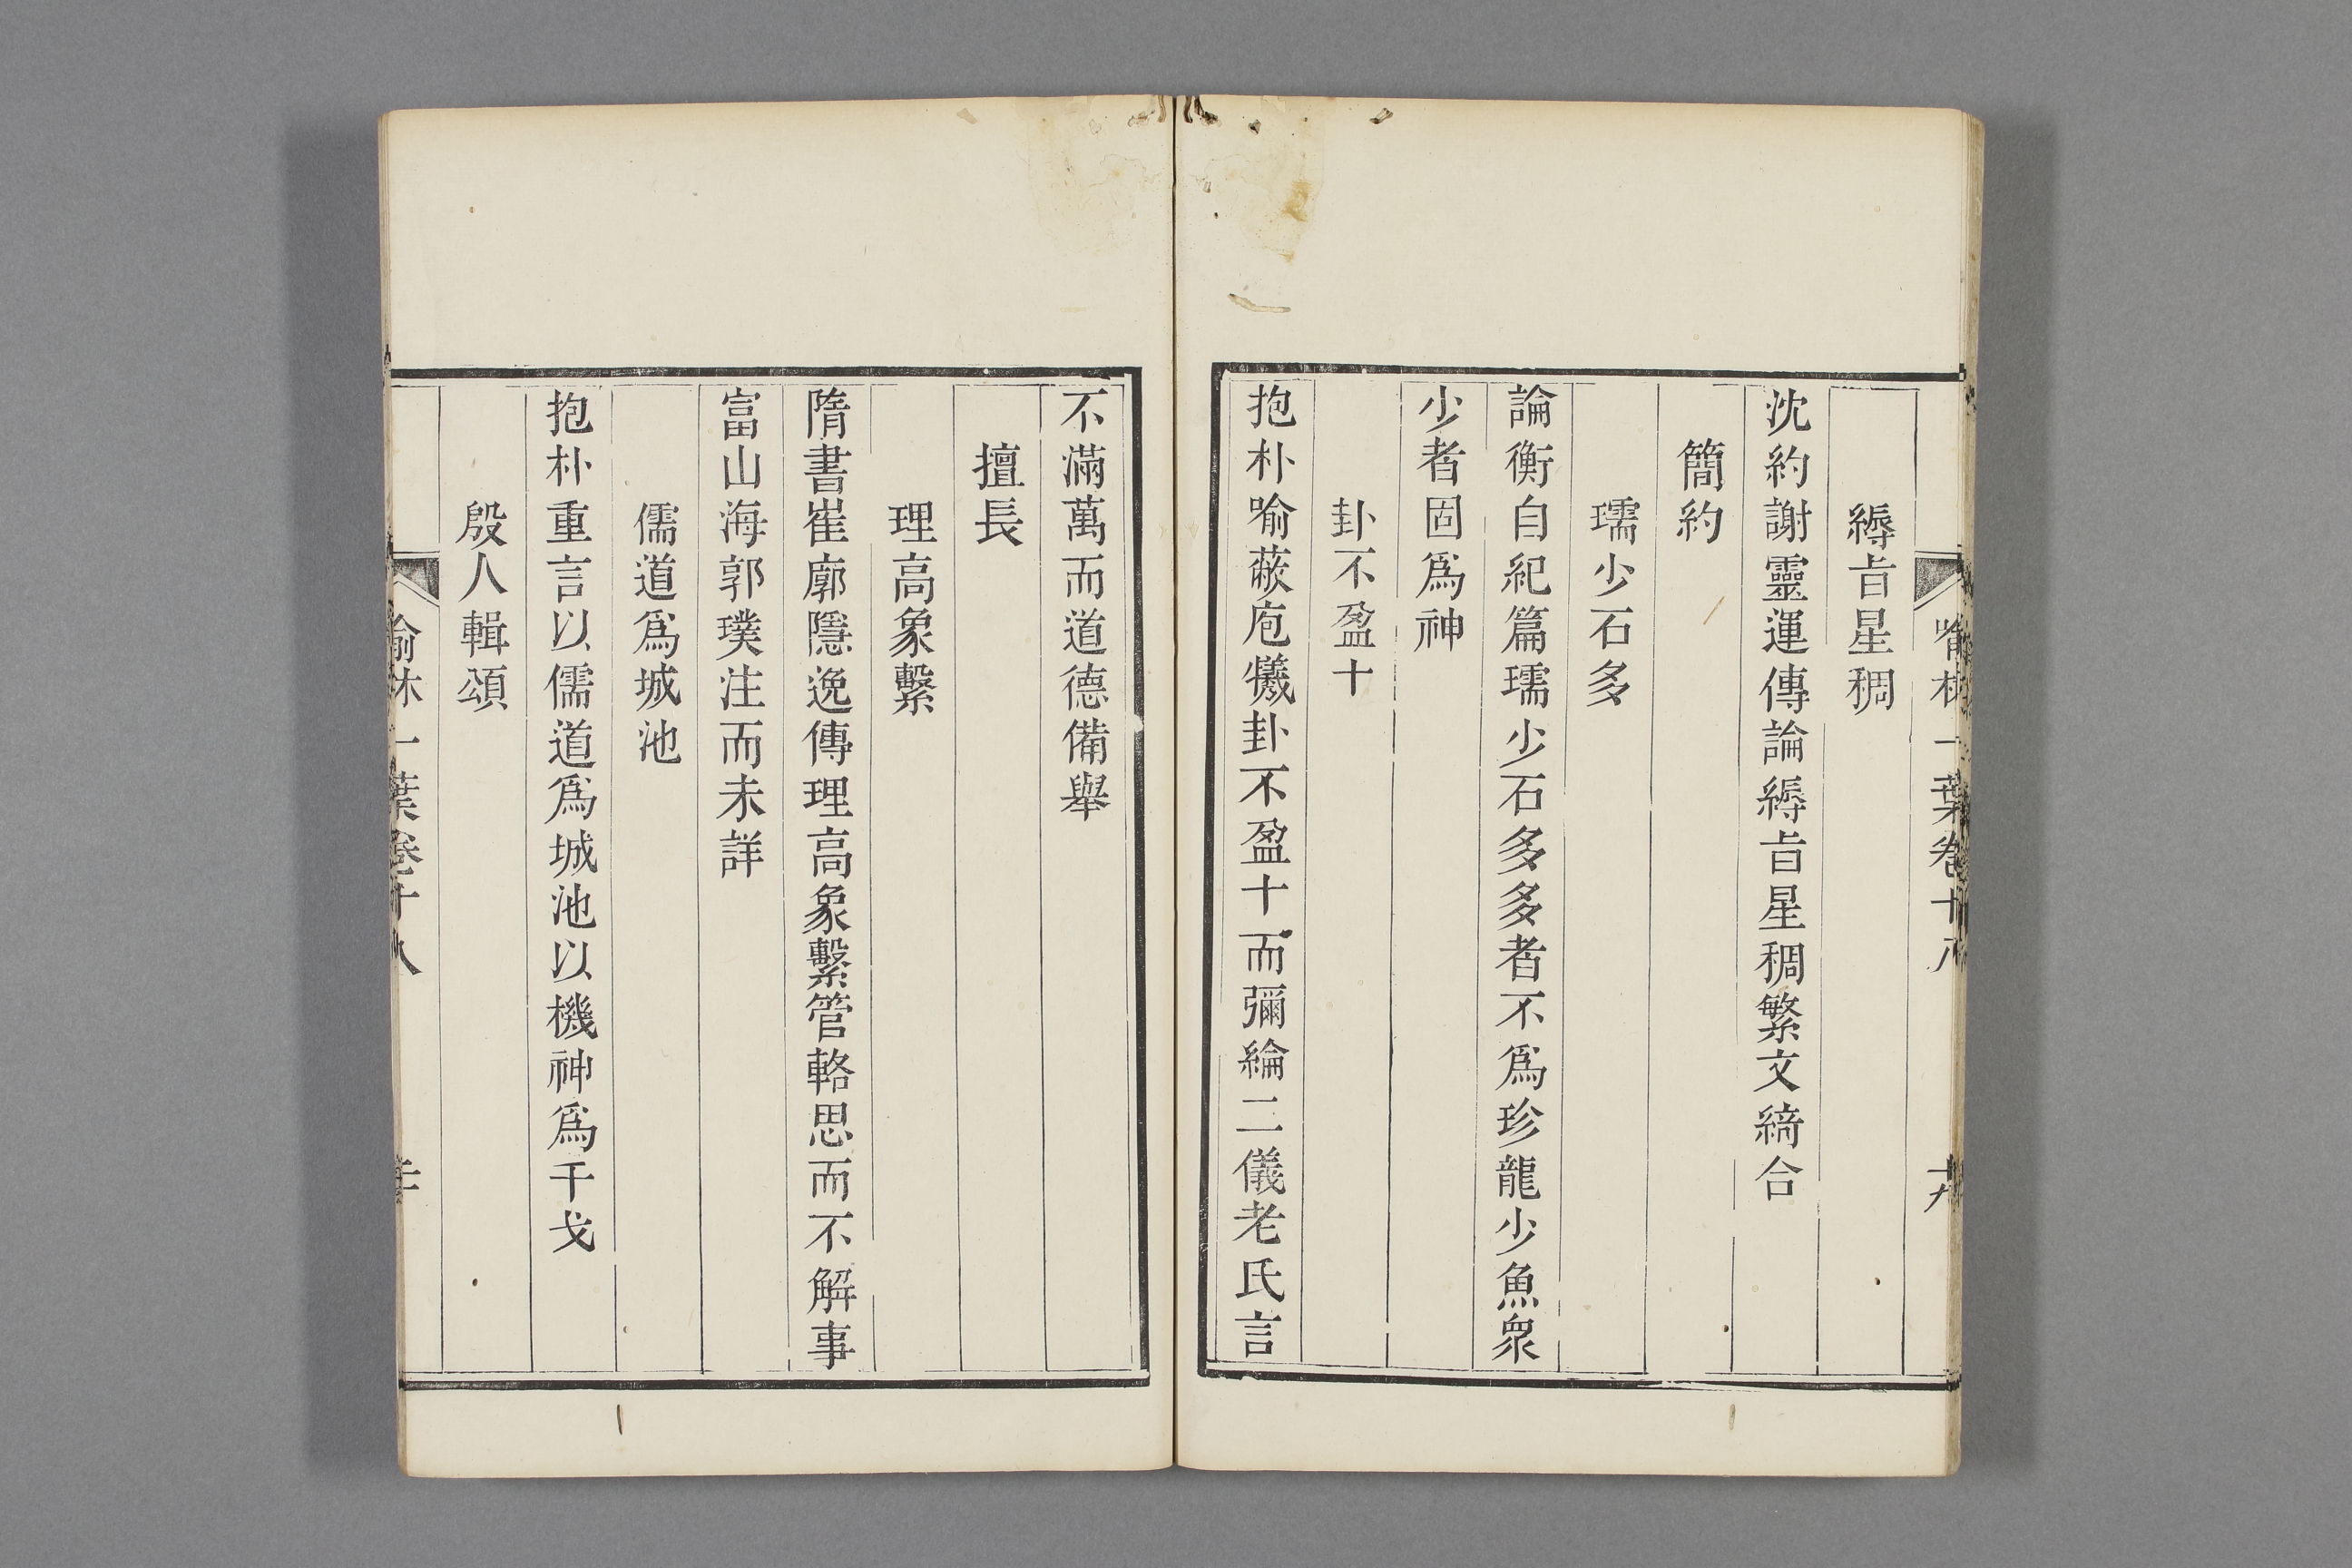 喻林一葉卷十八
十九
縟旨星稠
沈約謝靈運傳論縟旨星稠繁文綺合
簡約
瓀少石多
論衡自紀篇瓀少石多多者不爲珍龍少魚衆
少者固爲神
卦不盈十
抱朴喻蔽庖犧卦不盈十而彌綸二儀老氏言
不滿萬而道德備舉
擅長
理高象繫
隋書崔廓隱逸傳理高象繫管輅思而不解事
富山海郭璞注而未詳
儒道爲城池
抱朴重言以儒道爲城池以機神爲干戈
殷人輯頌
喻林一葉卷十八
二十